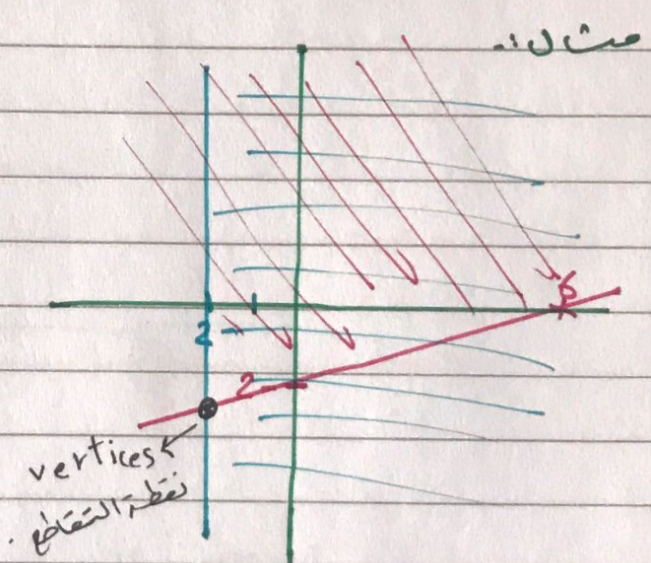 مثال:-
6
2 -
2
vertices
نقطة التقاطع .